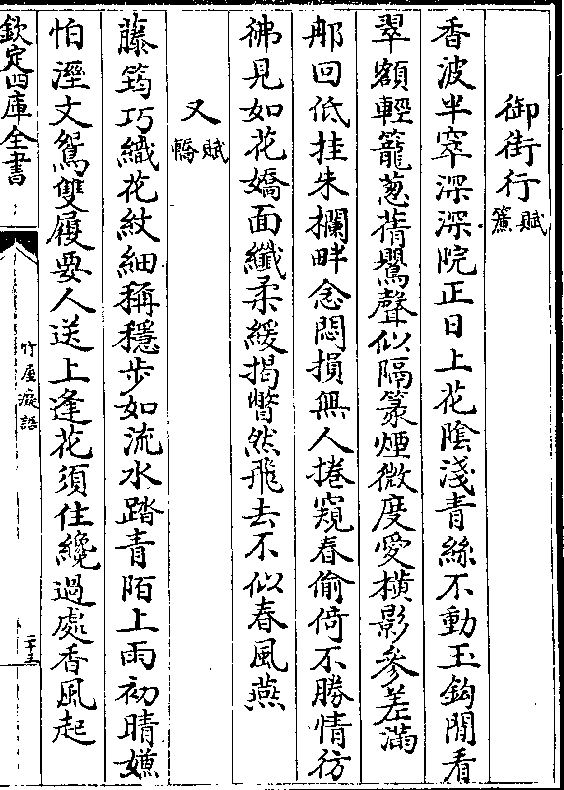 御街行賦簾
香波半窣深深院正日上花陰淺青絲不動玉鈎閒看
翠額輕籠葱蒨鸎聲似隔篆煙微度愛橫影參差滿
那回低挂朱欄畔念悶損無人捲窺春偷倚不勝情彷
彿見如花嬌面纖柔緩揭瞥然飛去不似春風燕
又賦轎
藤筠巧織花紋細稱穩步如流水踏青陌上雨初晴嫌
怕溼文鴛雙履要人送上逢花須住纔過處香風起
欽定四庫全書
竹屋癡語
二十三